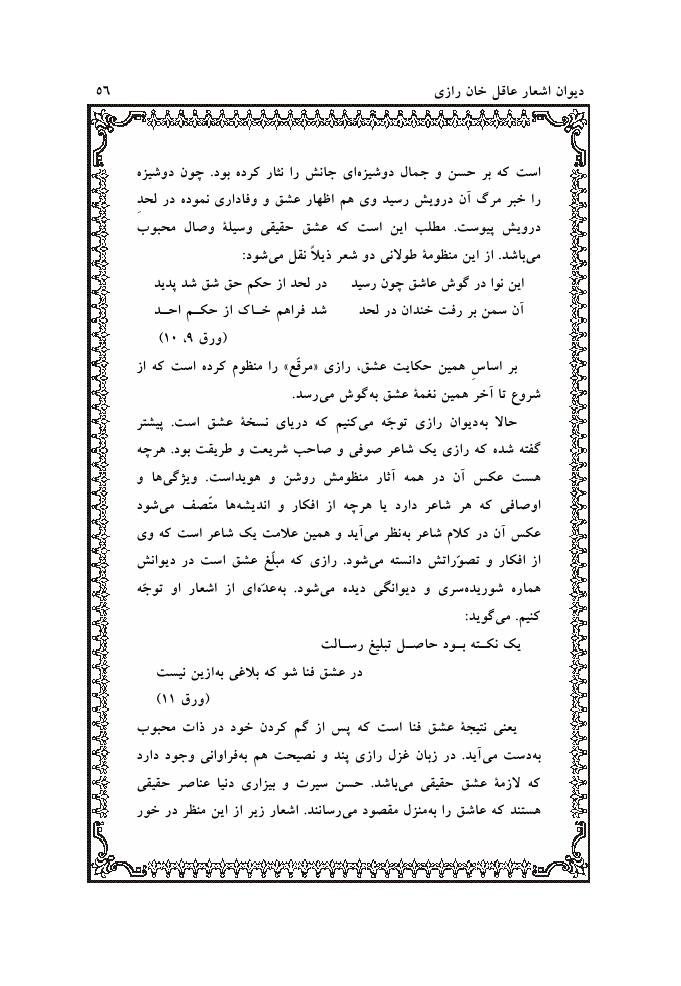 دیوان اشعار عاقل خان رازی ۵۶
است که بر حسن و جمال دوشیزه‌ای جانش را نثار کرده بود. چون دوشیزه
را خبر مرگ آن درویش رسید وی هم اظهار عشق و وفاداری نموده در لحدِ
درویش پیوست. مطلب این است که عشق حقیقی وسیلۀ وصال محبوب
می‌باشد. از این منظومۀ طولانی دو شعر ذیلاً نقل می‌شود:
این نوا در گوش عاشق چون رسید در لحد از حکم حق شق شد پدید
آن سمن بر رفت خندان در لحد شد فراهم خـاک از حکـم احـد
(ورق ۹، ۱۰)
بر اساسِ همین حکایت عشق، رازی «مرقّع» را منظوم کرده است که از
شروع تا آخر همین نغمۀ عشق به‌گوش می‌رسد.
حالا به‌دیوان رازی توجّه می‌کنیم که دریای نسخۀ عشق است. پیشتر
گفته شده که رازی یک شاعر صوفی و صاحب شریعت و طریقت بود. هرچه
هست عکس آن در همه آثار منظومش روشن و هویداست. ویژگی‌ها و
اوصافی که هر شاعر دارد یا هرچه از افکار و اندیشه‌ها متّصف می‌شود
عکس آن در کلام شاعر به‌نظر می‌آید و همین علامت یک شاعر است که وی
از افکار و تصوّراتش دانسته می‌شود. رازی که مبلّغ عشق است در دیوانش
هماره شوریده‌سری و دیوانگی دیده می‌شود. به‌عدّه‌ای از اشعار او توجّه
کنیم. می‌گوید:
یک نکـته بـود حاصـل تبلیغ رسـالت
در عشق فنا شو که بلاغی به‌ازین نیست
(ورق ۱۱)
یعنی نتیجۀ عشق فنا است که پس از گم کردن خود در ذات محبوب
به‌دست می‌آید. در زبان غزل رازی پند و نصیحت هم به‌فراوانی وجود دارد
که لازمۀ عشق حقیقی می‌باشد. حسن سیرت و بیزاری دنیا عناصر حقیقی
هستند که عاشق را به‌منزل مقصود می‌رسانند. اشعار زیر از این منظر در خور